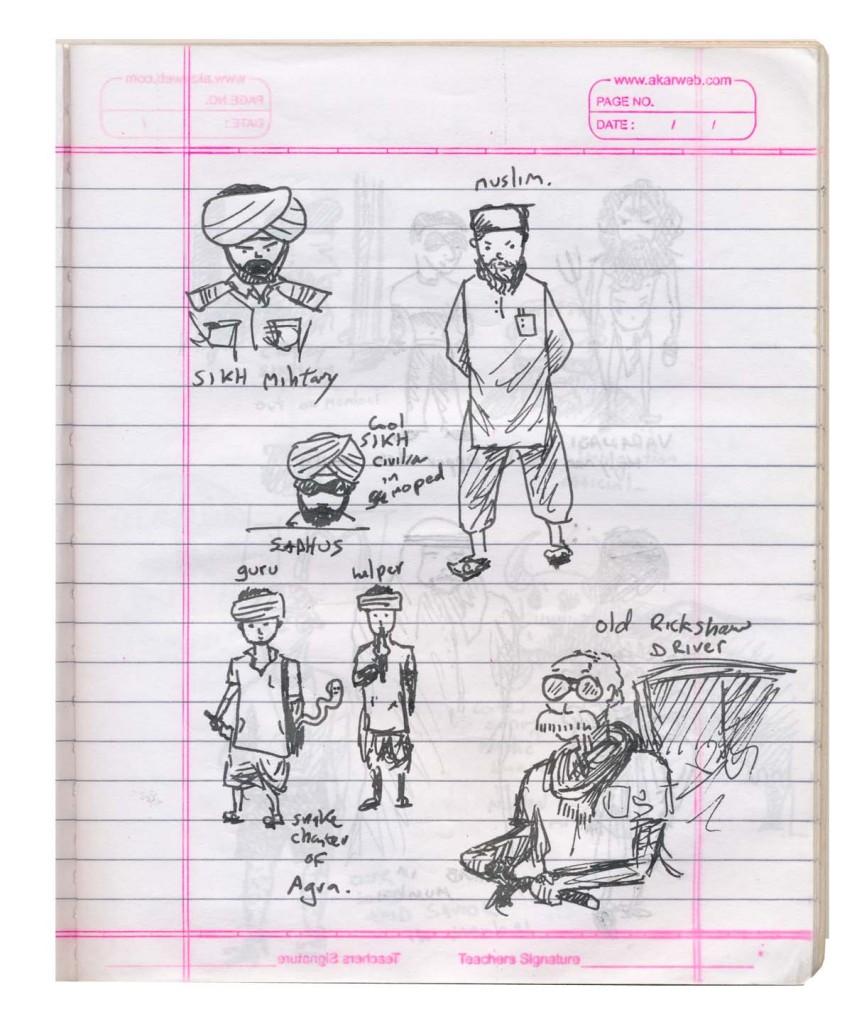 www.akarweb.com
PAGE NO.
DATE : / /
muslim.
SIKH Military
Cool
SIKH
civilian
in
moped
SADHUS
guru
helper
old Rickshaw
DRiver
snake
charmer
OF
Agra.
Teachers Signature